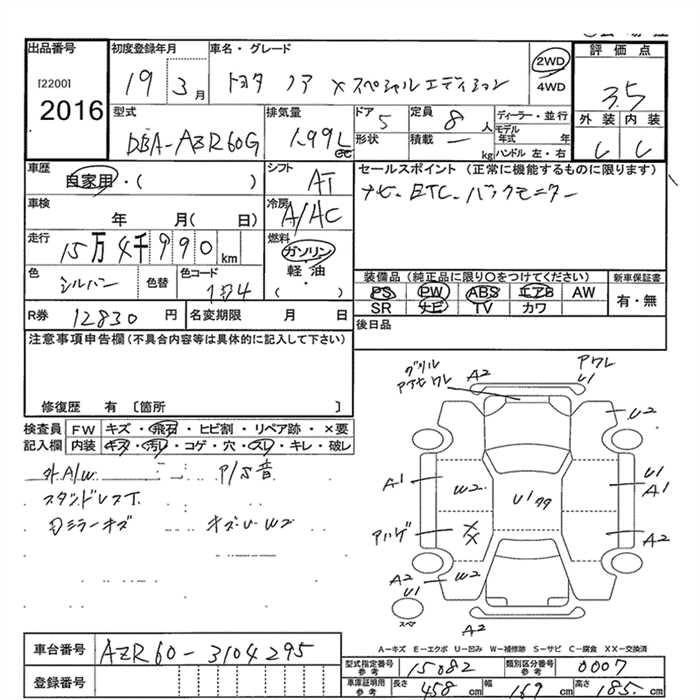 出品番号
[2200]
2016
初度登録年月
19 3月
車名・グレード
トヨタ ノア X スペシャルエディション
2WD
4WD
評価点
3.5
外装 内装
C C
型式
DBA-AZR60G
排気量
1.99L
ドア
5
形状
定員
8人
積載
— kg
ディーラー・並行
モデル年式 年
ハンドル 左・右
車歴
自家用・( )
シフト
AT
セールスポイント (正常に機能するものに限ります)
ナビ・ETC・バックモニター
車検
年 月( 日)
冷房
A/AC
走行
15万4千990km
燃料
ガソリン
軽油
( )
色
シルバー
色替
色コード
1D4
装備品(純正品に限り○をつけてください)
PS PW ABS エアB AW
SR ナビ TV カワ
新車保証書
有・無
R券 12830 円
名変期限 月 日
後日品
注意事項申告欄(不具合内容等は具体的に記入して下さい)
修復歴 有 [箇所 ]
検査員記入欄
FW キズ・飛石・ヒビ割・リペア跡・×要
内装 キズ・汚レ・コゲ・穴・スレ・キレ・破レ
外A/W
P/S音
スタンドレスT
ミラーキズ
キズU W2
グリル
A2
アワレ
U1
U2
A1
W2
U1
U1
A1
アハゲ
XX
A2
A2
U1
W2
スペア
A2
A-キズ E-エクボ U-凹み W-補修跡 S-サビ C-腐食 XX-交換済
車台番号
AZR60-3104295
登録番号
型式指定番号 参考
15082
類別区分番号 参考
0007
車庫証明用 参考
長さ 458cm
幅 169cm
高さ 185cm